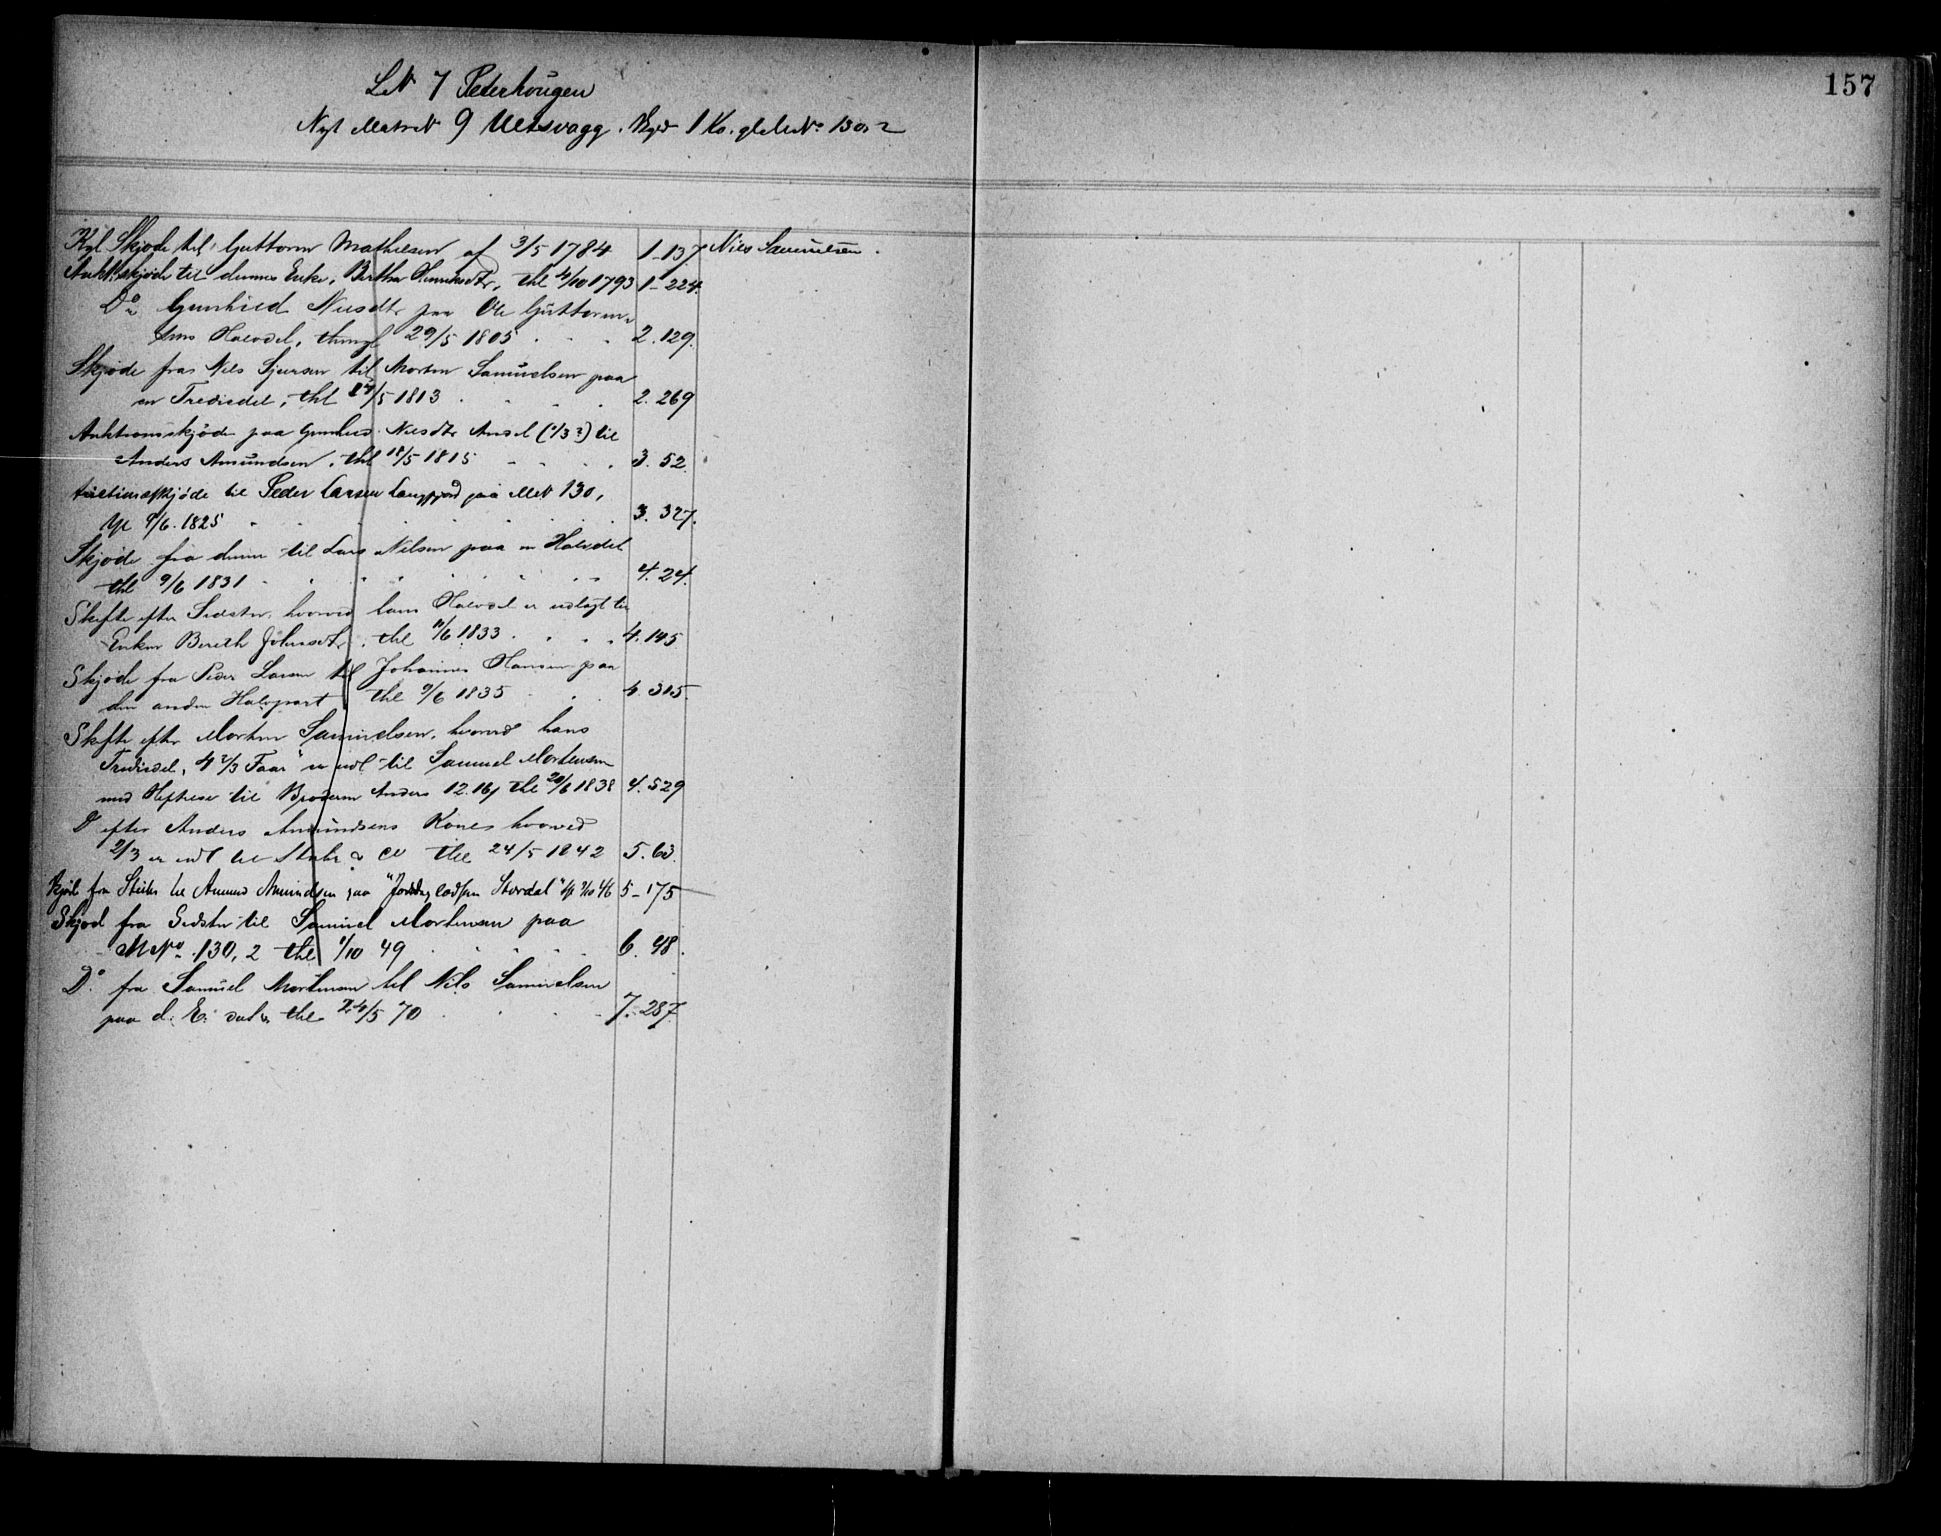 157
LN 7 Peterhougen
Nyt Matr N 9 Ulvsvagg. Skyld 1 Ko. gl. M. No 130. 2
Kgl Skjøde til Guttorm Mathiesen af 3/5 1784 1-137 Niels Samuelsen.
Aukt.skjøde til dennes Enke, Bertha, thl 4/10 1793 1-224.
Do Gunhild Nilsdtr paa Ole Guttorm-
sens Halvdel, thingl 29/5 1805 2.129.
Skjøde fra Nils Sjursen til Morten Samuelsen paa
en Trediedel, thl 27/5 1813 2.269
Auktionsskjøde paa Gunhild Nilsdtr Andel (1/3?) til
Anders Amundsen, thl 18/5 1815 3.52.
Auctionsskjøde til Peder Larsen Langfjord paa MN 130,
thl 9/6. 1825 3.327.
Skjøde fra denne til Lars Nilsen paa en Halvdel
thl 9/6 1831 4.24.
Skifte efter Sidstn. hvorved hans Halvdel er udlagt til
Enken Bereth Johnsdtr, thl 11/6 1833 4.145
Skjøde fra Peder Larsen til Johannes Hansen paa
den anden Halvpart thl 9/6 1835 4.315.
Skifte efter Morten Samuelsen, hvorved hans
Trediedel, 4 2/3 Faar er udl til Samuel Mortensen
med Heftelse til Broderen Anders 12.16, thl 20/6 1838 4.529
Do efter Anders Amundsens Kone hvorved
2/3 er udl til thl 24/5 1842 5.63.
Skjøde fra til Amund Amundsen paa "Jordstk, lodsen Stordal" 46 5-175
Skjød fra Sidstn til Samuel Mortensen paa
M No 130, 2 thl 1/10 49 6.48.
Do. fra Samuel Mortensen til Nils Samuelsen
paa d. E. dat. thl 24/5 70 7.287.